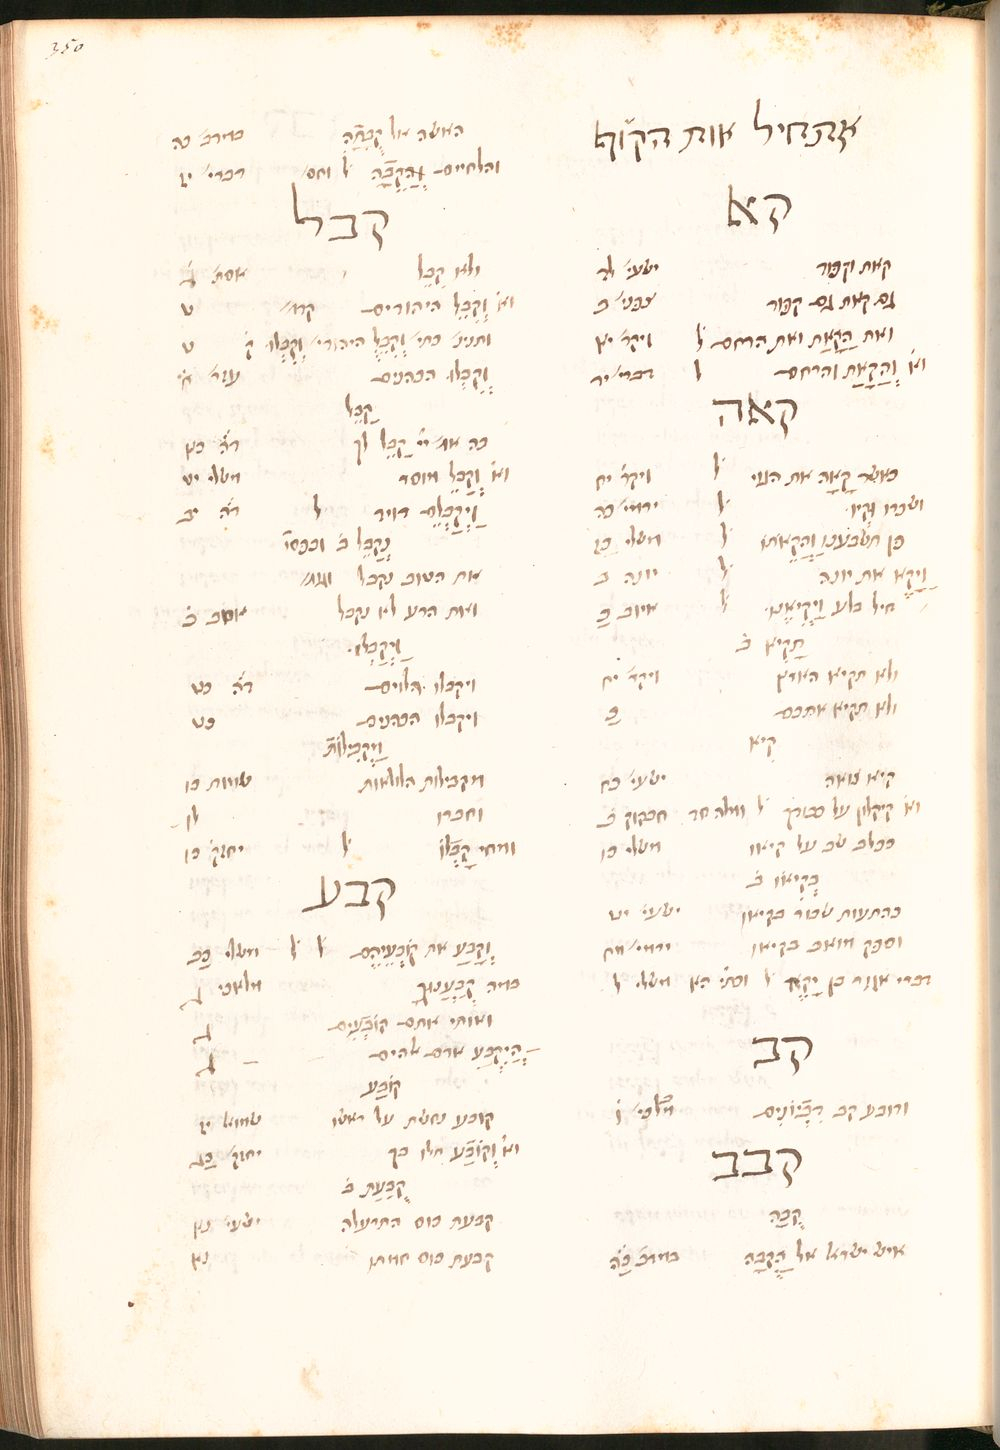 350
אתחיל אות הקוף
קא
קאת וקפוד ישעי׳ לד
גם קאת גם קפוד צפני׳ ב
ואת הַקָאַת ואת הרחם ל׳ ויקר׳ יא
וא׳ וְהַקָאַת והרחם ל׳ דברי׳ יד
קאה
כאשר קָאָה את הגוי ל׳ ויקר׳ יח
ושכרו וקְיו ל׳ ירמי׳ כה
פן תשבענו וַהֲקֵאתו ל׳ משלי כה
וַיָקֵא את יונה ל׳ יונה ב
חיל בלע וַיְקִיאֶנו ל׳ איוב כ
תָקִיא ב׳
ולא תקיא הארץ ויקר׳ יח
ולא תקיא אתכם כ
קִיא
קיא צואה ישעי׳ כח
וא׳ קיקלון על כבודך ל׳ ומלה חד חבקוק ב
ככלב שב על קיאו משלי כו
בְקִיאו ב׳
כהתעות שכור בקיאו ישעי׳ יט
וספק מואב בקיאו ירמי׳ מח
דברי אגור בן יָקֶא ל׳ וסתי׳ הא משלי ל
קב
ורובע קב דִבְיונִים מלכי׳ ו
קבב
קֻבָה
איש ישראל אל הַקֻבָה במדבר כה
האשה אל קֳבָתָה במדבר׳ כה
והלחיים וְהַקֵבָה ל׳ וחס׳ דברי׳ יח
קבל
ולא קִבֵל אסת׳ ד
וא׳ וְקִבֵל היהודים קרי׳ ט
ותנינ׳ כתי׳ וְקִבֵל היהודי׳ וְקִבְלו ק׳ ט
וְקִבְלו הכהנים עזר׳ ח׳
קַבֵל
כה אמ׳ יי׳ קַבֵל לך ד״ה כא
וא׳ וְקַבֵל מוסר משלי יט
וַיְקַבְלֵם דויד ל׳ ד״ה יב
נְקַבֵל ב׳ ובפסו׳
את הטוב נקבל וגו׳
ואת הרע לא נקבל איוב ב
וַיְקַבְלו
ויקבלו הלוים ד״ה כט
ויקבלו הכהנים כט
מַקְבִילות
מקבילות הלולאות שמות כו
וחברו לו
ומחי קָבְלו ל׳ יחזק׳ כו
קבע
וְקָבַע את קובְעֵיהֶם ל׳ ל׳ משלי כב
במה קְבַעֲנוך מלאכי ג
ואותי אתם קובְעִים ג
הֲיִקְבַע אדם אלהים ג
קובַע
קובע נחשת על ראשו שמואל יז
וא׳ וְקובַע תלו בך יחזק׳ כז
קֻבַעַת ב׳
קבעת כוס התרעלה ישעי׳ נא
קבעת כוס חמתי נא